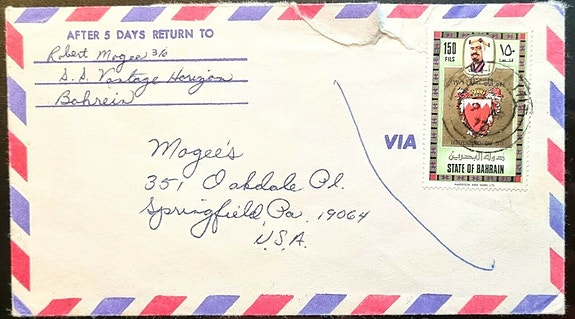 AFTER 5 DAYS RETURN TO
Robert Mogee 3/O
S.S. Vantage Horizon
Bahrein
Mogee's
351 Oakdale Pl.
Springfield Pa. 19064
U.S.A.
VIA
150
FILS
١٥٠
فلسا
INDEPENDENCE DAY
دولة البحرين
STATE OF BAHRAIN
HARRISON AND SONS LTD